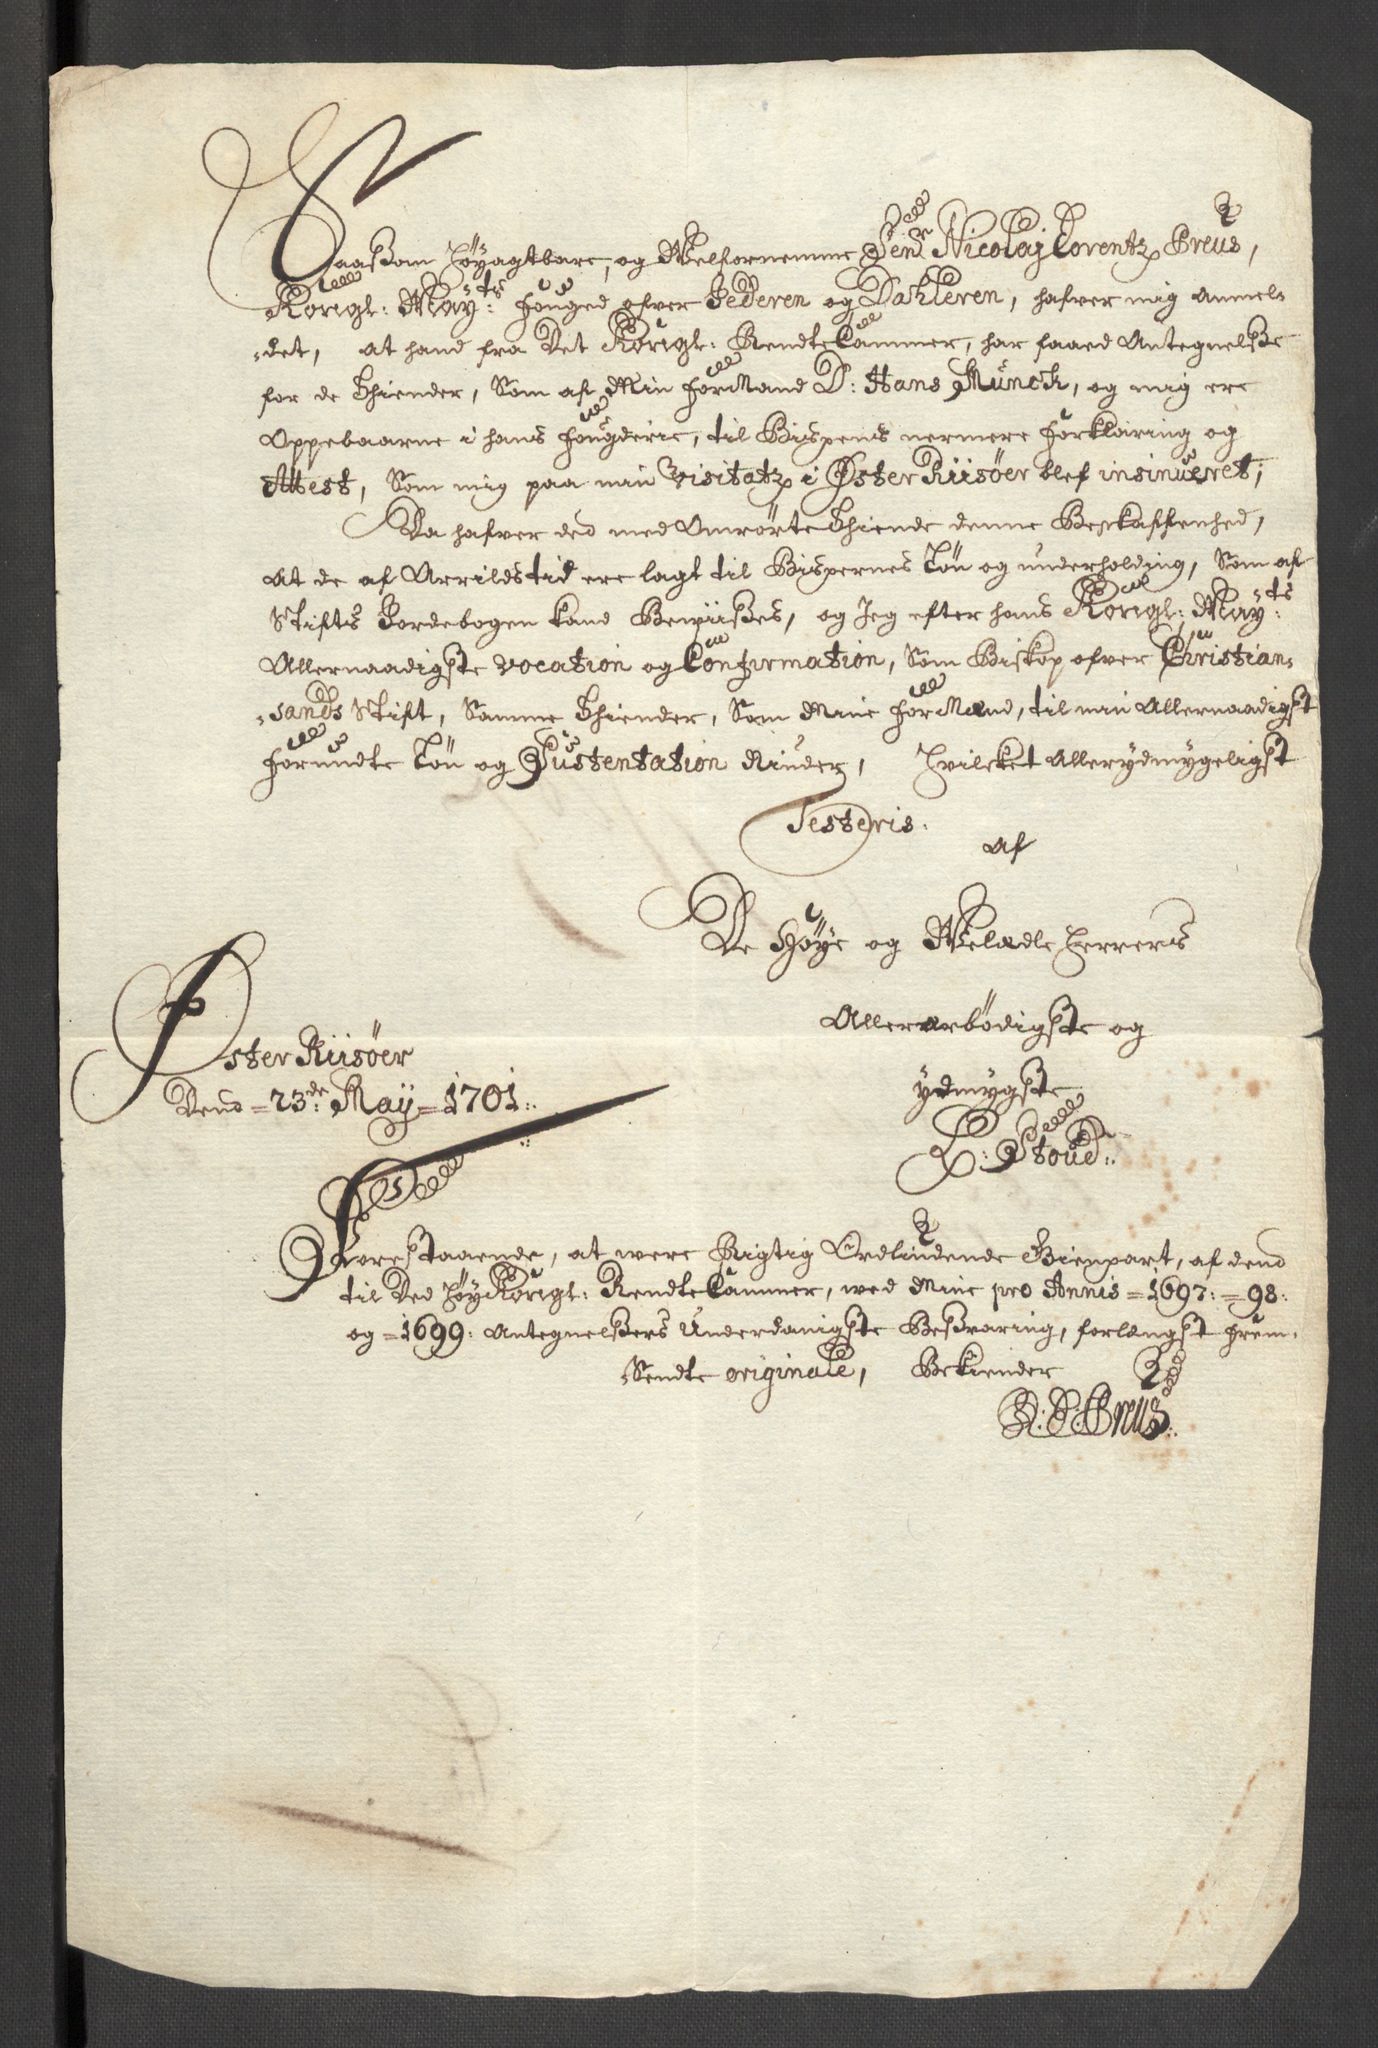 Saasom Høyagtbare, og Welfornemme Senr Nicolaj Lorentz Preus,
Kongl: Mayts: Fouged ofver Jederen og Dahleren, hafver mig anmel-
-det, at hand fra Det Kongl: RendteCammer, har faaed Antegnelße
for de Thiender, Som af Min ForMand D: Hans Munch, og mig ere
Oppebaarne i hans Fougderie, til Bispens nermere Forklaring og
Attest, Som mig paa min Visitatz i ØsterRiisöer blef insinueret;
Da hafver ded med Omrörte Thiende denne Beskaffenhed,
At de af Arrilds tid ere lagt til Bispernes Lön og underholding, Som af
Stiftis Jordebogen kand Beviißes, og Jeg efter hans Kongl: Mayts:
Allernaadigste vocation og Confirmation, Som Biskop ofver Christian-
-sands Stift, Samme Thiender, Som Mine ForMænd, til min Allernaadigst
Forundte Lön og Sustentation Niuder, Hvilcket Allerydmygeligst
Testeris.
Af
De Høye og Welædle Herrers
Allerærbödigste og
ydmygste
L: Stoud:
ØsterRiisöer
Dend =23de: May =1701:
Forestaaende, at were Rigtig Ordlindende Gienpart, af dend
til Ded HøyKongl: RendteCammer, wed Mine pro Annis =1697: =98:
og =1699: Antegnelßers Underdanigste Beßvaring, forlængst Frem-
-Sendte originale, Bekiender
N: L: Preus: